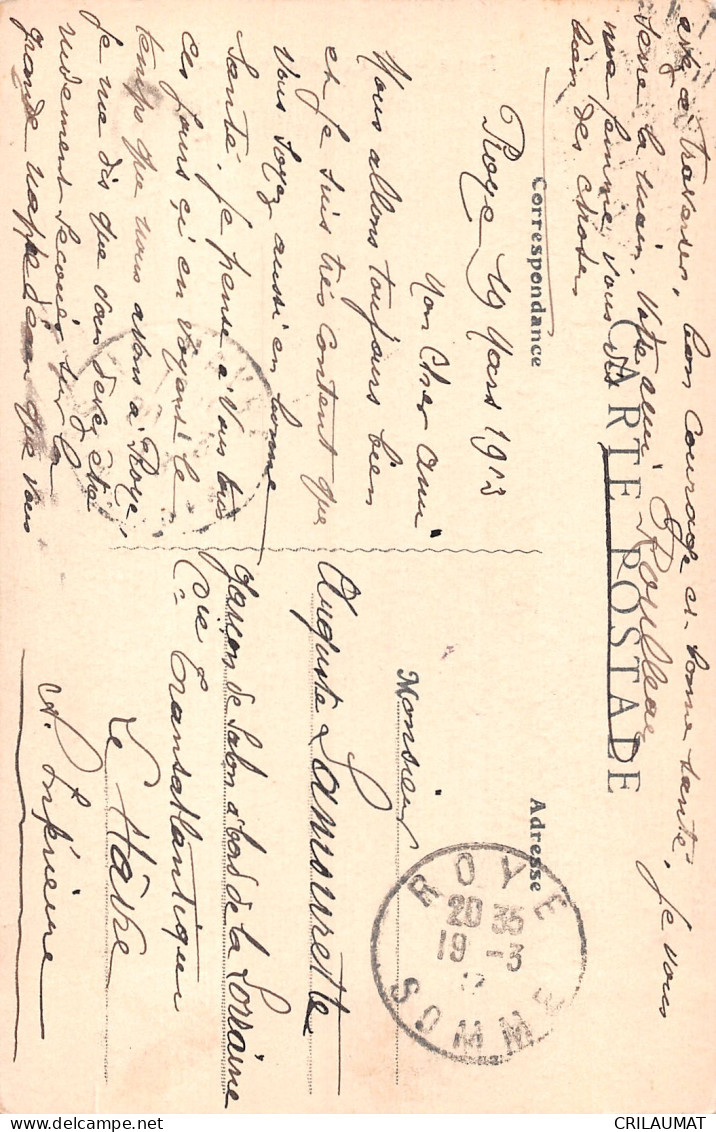 CARTE POSTALE
Correspondance
Adresse
Roye 19 Mars 1913
Mon Cher Ami
Nous allons toujours bien
et je suis très content que
vous soyez aussi en bonne
santé, je pense à vous tous
ces jours çi en voyant le
temps que nous avons à Roye
je me dis que vous devez être
rudement secoués sur la
grande nappe d'eau que vous
avez à traverser, bon courage et bonne santé, je vous
serre la main, Votre ami Rouilleau
ma femme vous dit
bien des choses
Monsieur
Auguste Lamourette
garçon de Salon à bord de la Lorraine
Cie Gle Transatlantique
Le Hâvre
S. Inférieure
ROYE
20 35
19 -3
SOMME
CRILAUMAT